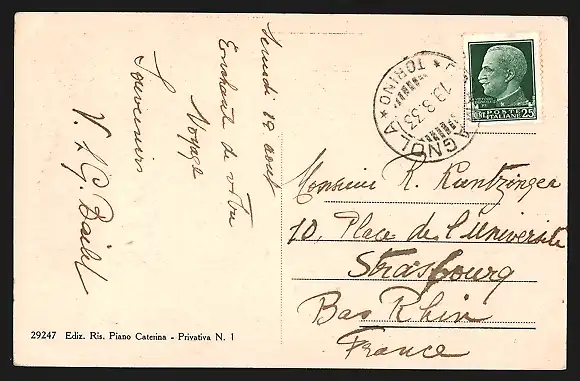 Samedi 19 août
Enchanté de votre
Voyage
Souvenirs
V. & G.
TORINO
19.8.33
AGNOLA
POSTE
ITALIANE
25
Monsieur R. Kuntzinger
10, Place de l'Université
Strasbourg
Bas Rhin
France
29247 Ediz. Ris. Piano Caterina - Privativa N. 1